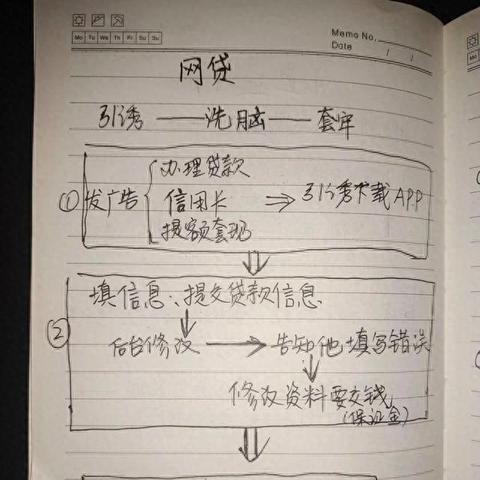 Mo Tu We Th Fr Sa Su
Memo No.
Date / /
网贷
引诱——洗脑——套牢
①发广告 { 办理贷款
信用卡
提额套现
⇒ 引诱下载APP
②
填信息:提交贷款信息
后台修改 → 告知他填写错误
修改资料要交钱
(保证金)